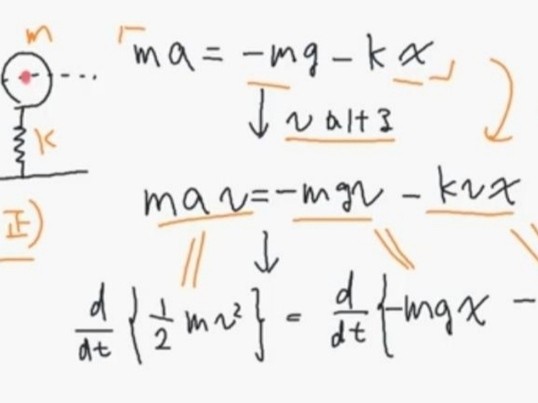 m
「ma = -mg - kx」
k
↓ vかける
正)
mav = -mgv - kvx
↓
d/dt {1/2 mv²} = d/dt {-mgx -